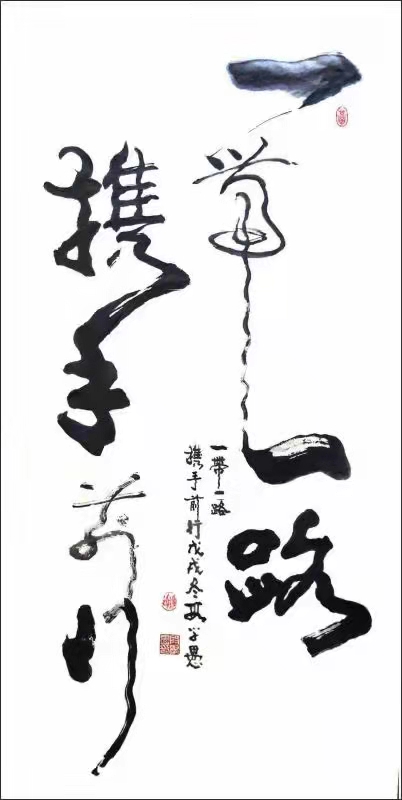 一带一路
携手前行
一带一路
携手前行戊戌冬